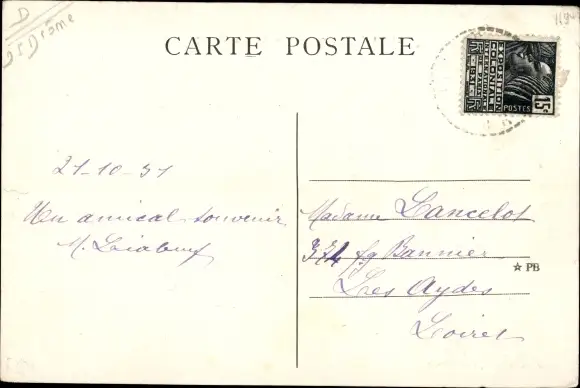 D
Drôme
CARTE POSTALE
EXPOSITION
COLONIALE
INTERNATIONALE
PARIS
1931
POSTES
15c
21-10-31
Un amical souvenir
M.
Madame Lancelot
374 fg Bannier
Les Aydes
Loiret
☆ PB